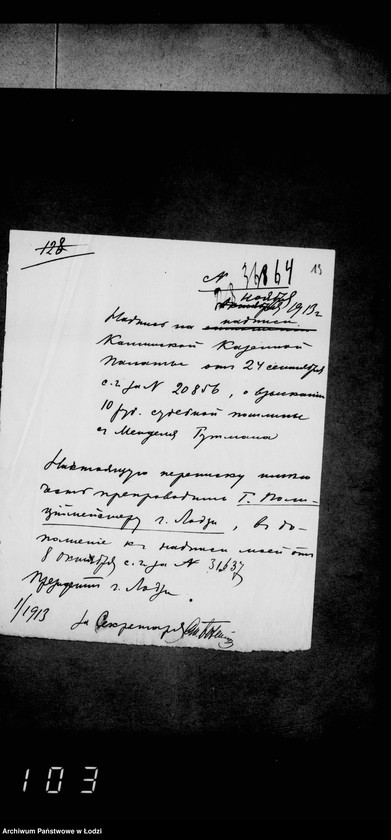 128
№ 36864 15
28 ноября 1913 г
Надпись на надписи
Калишской Казенной
Палаты от 24 сентября
с.г. за № 20856, о взыскании
10 руб. судебной пошлины
с Менделя Гутмана
Настоящую переписку имею
честь препроводить Г. Поли-
цiймейстеру г. Лодзи, в до-
полненiе к надписи моей от
8 октября с.г. за № 31637
Президент г. Лодзи
1/1913
за Секретаря
103
Archiwum Państwowe w Łodzi